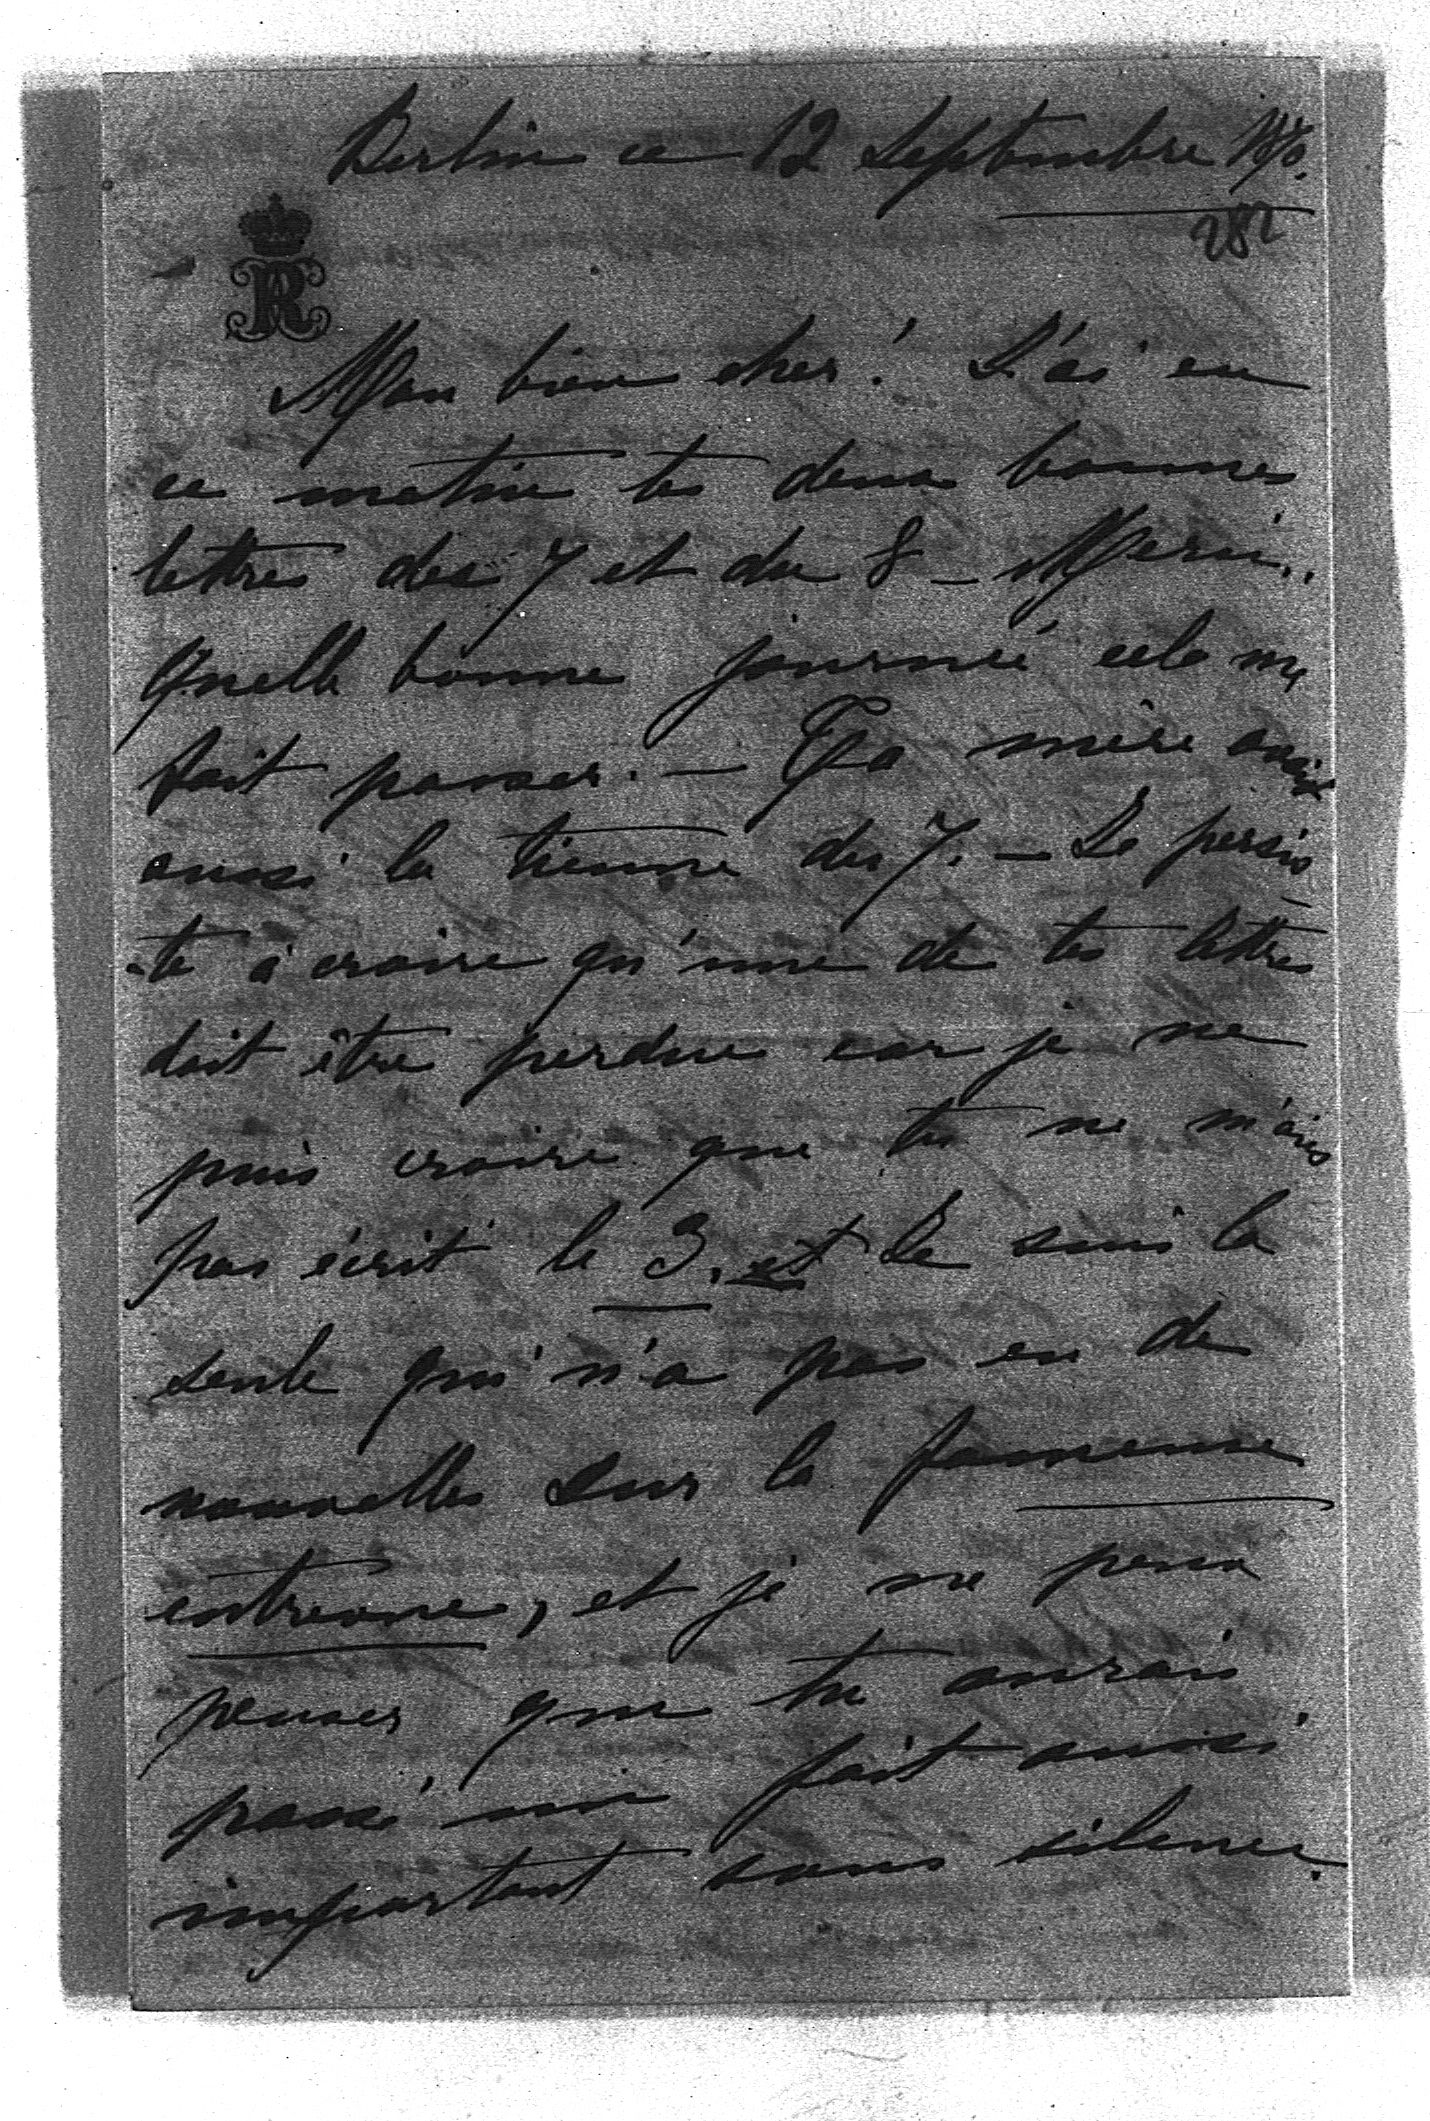 Berlin ce 12 Septembre 1870.
282
R
Mon bien cher! J'ai eu
ce matin tes deux bonnes
lettres des 7 et du 8 – Merci..
Quelle bonne journée cela me
fait passer. – Ta mère avait
aussi la tienne du 7. – Je persis
-te à croire qu'une de tes lettres
doit être perdue car je ne
puis croire que tu ne m'aies
pas écrit le 3. et Je suis la
seule qui n'a pas eu de
nouvelles sur la fameuse
entrevue, et je ne peux
penser que tu aurais
passé un fait aussi
important sous silence.